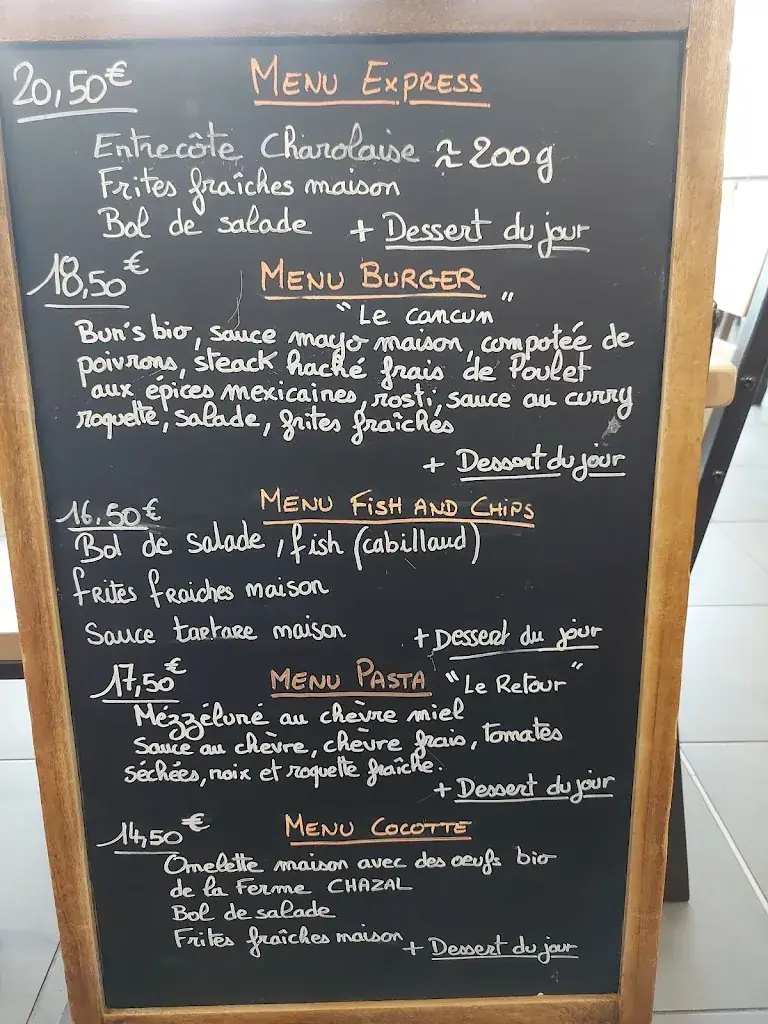 20,50€ MENU EXPRESS
Entrecôte Charolaise ≈ 200g
Frites fraîches maison
Bol de salade + Dessert du jour
18,50€ MENU BURGER
"Le cancun"
Bun's bio, sauce mayo maison, compotée de
poivrons, steack haché frais de Poulet
aux épices mexicaines, rosti, sauce au curry
roquette, salade, frites fraîches
+ Dessert du jour
16,50€ MENU FISH AND CHIPS
Bol de salade, fish (cabillaud)
frites fraiches maison
Sauce tartare maison + Dessert du jour
17,50€ MENU PASTA "Le Retour"
Mézzéluné au chèvre miel
Sauce au chèvre, chèvre frais, tomates
séchées, noix et roquette fraîche.
+ Dessert du jour
14,50€ MENU COCOTTE
Omelette maison avec des oeufs bio
de la Ferme CHAZAL
Bol de salade
Frites fraîches maison + Dessert du jour